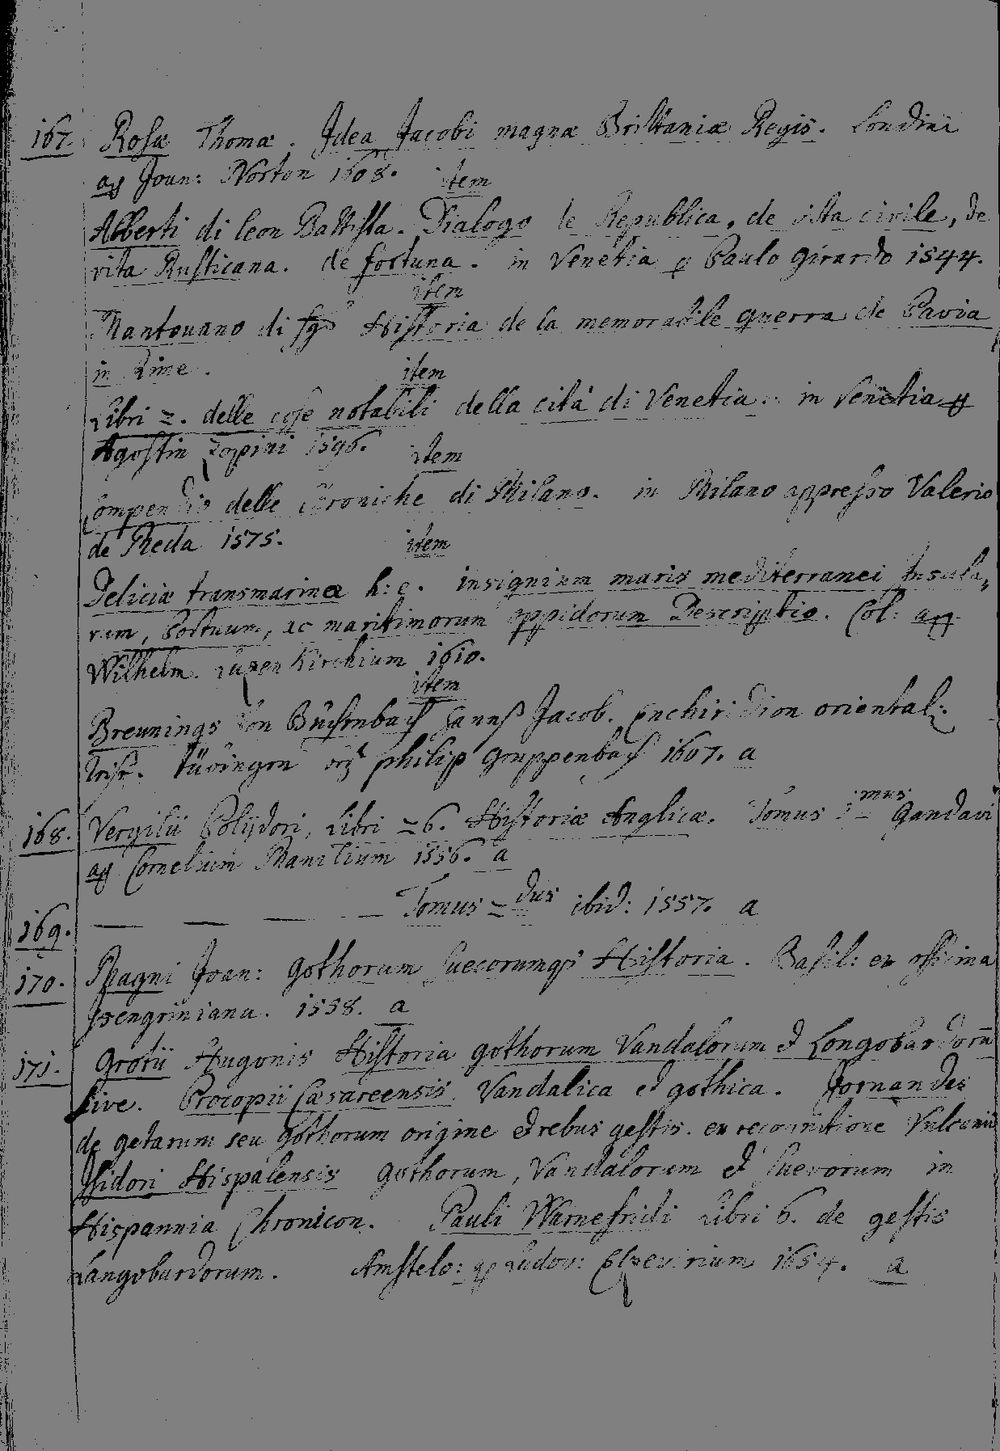 167. Rosæ Thomæ. Idea Jacobi magnæ Brittaniæ Regis. Londini
ap Joan: Norton 1608. item
Alberti di leon Battista. Dialogo de Republica, de vita civile, de
vita Rusticana. de fortuna. in Venetia p Paulo Girardo 1544.
item
Mantouano di Historia de la memorabile guerra de Pavia
in Rime. item
Libri 2. delle cose notabili della cità di Venetia. in Venetia
Agostin Zoppini 1596. item
Compendio delle Croniche di Milano. in Milano appresso Valerio
de Meda 1575. item
Deliciæ transmarinæ h: e. insignium maris mediterranei Insula-
rum, Portuum, ac maritimorum oppidorum Descriptio. Col: ap
Wilhelm. Lutzenkirchium 1610.
item
Breunings Von Buchenbach Hanns Jacob. Enchiridion oriental:
Tübingen philip Gruppenbach 1607. a
168. Vergilii Polijdori, Libri 26. Historiæ Anglicæ. Tomus 1mus Gandavi
ap Cornelium Manilium 1556. a
169. Tomus 2dus ibid: 1557. a
170. Magni Joan: Gothorum Suecorumq Historia. Basil: ex officina
Isengriniana. 1558. a
171. Grotii Hugonis Historia Gothorum Vandalorum et Longobardorũ
sive. Procopii Cæsareensis. Vandalica et gothica. Jornandes
de getarum seu Gothorum origine et rebus gestis. ex recognitione Vulcanii
Isidori Hispalensis Gothorum, Vandalorum et Suevorum in
Hispannia Chronicon. Pauli Warnefridi Libri 6. de gestis
Langobardorum. Amstelo: ap Ludov: Elzevirium 1654. a